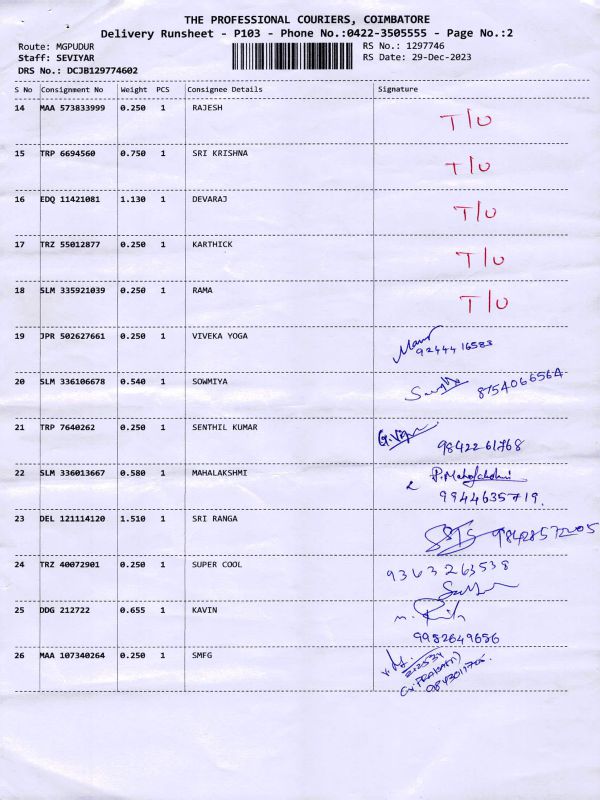 THE PROFESSIONAL COURIERS, COIMBATORE
Delivery Runsheet - P103 - Phone No.:0422-3505555 - Page No.:2
Route: MGPUDUR RS No.: 1297746
Staff: SEVIYAR RS Date: 29-Dec-2023
DRS No.: DCJB129774602
S No Consignment No Weight PCS Consignee Details Signature
14 MAA 573833999 0.250 1 RAJESH T/U
15 TRP 6694560 0.750 1 SRI KRISHNA T/U
16 EDQ 11421081 1.130 1 DEVARAJ T/U
17 TRZ 55012877 0.250 1 KARTHICK T/U
18 SLM 335921039 0.250 1 RAMA T/U
19 JPR 502627661 0.250 1 VIVEKA YOGA
9244416583
20 SLM 336106678 0.540 1 SOWMIYA 8754066564
21 TRP 7640262 0.250 1 SENTHIL KUMAR
9842261768
22 SLM 336013667 0.580 1 MAHALAKSHMI P.Mahalakshmi
9944635719.
23 DEL 121114120 1.510 1 SRI RANGA
24 TRZ 40072901 0.250 1 SUPER COOL 9363263538
25 DDG 212722 0.655 1 KAVIN
9952649656
26 MAA 107340264 0.250 1 SMFG